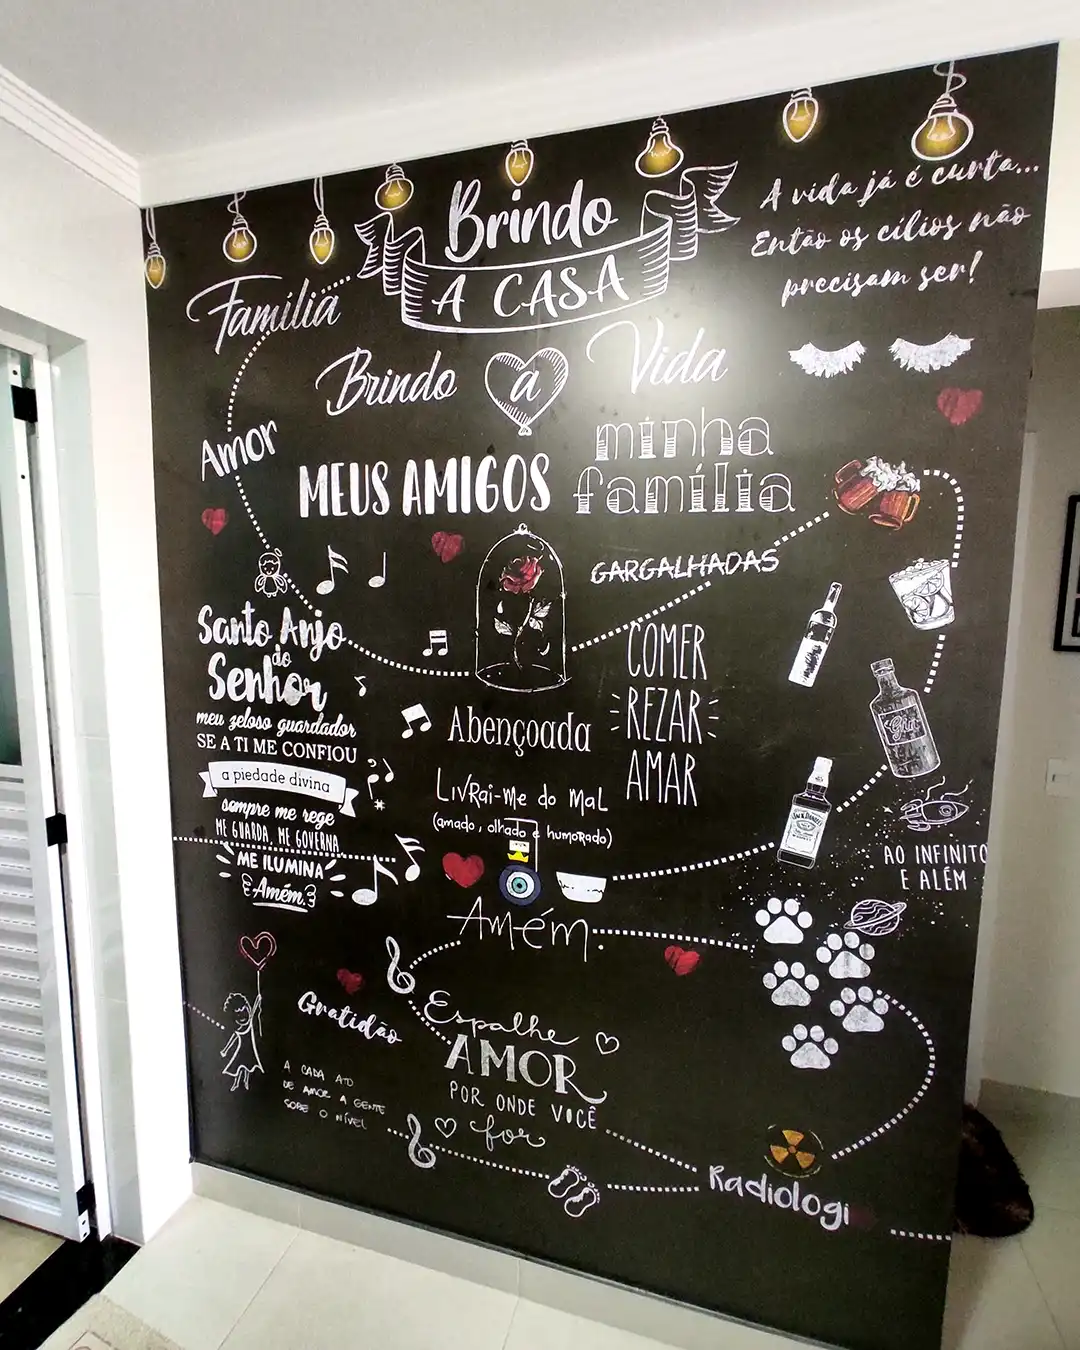 Brindo
A CASA
A vida já é curta...
Então os cílios não
precisam ser!
Família
Brindo a Vida
Amor
MEUS AMIGOS
minha
família
GARGALHADAS
Santo Anjo
do
Senhor
meu zeloso guardador
SE A TI ME CONFIOU
a piedade divina
sempre me rege
ME GUARDA, ME GOVERNA
ME ILUMINA
Amém.
COMER
REZAR
AMAR
Abençoada
LIVRAI-ME do MAL
(amado, olhado e humorado)
Amém.
Gin
JACK DANIEL'S
AO INFINITO
E ALÉM
Gratidão
A CADA ATO
DE AMOR A GENTE
SOBE O NÍVEL
Espalhe
AMOR
POR ONDE VOCÊ
for
Radiologi